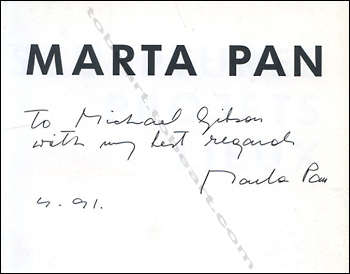 MARTA PAN
To Michael Gibson
with my best regards
Marta Pan
4.91.